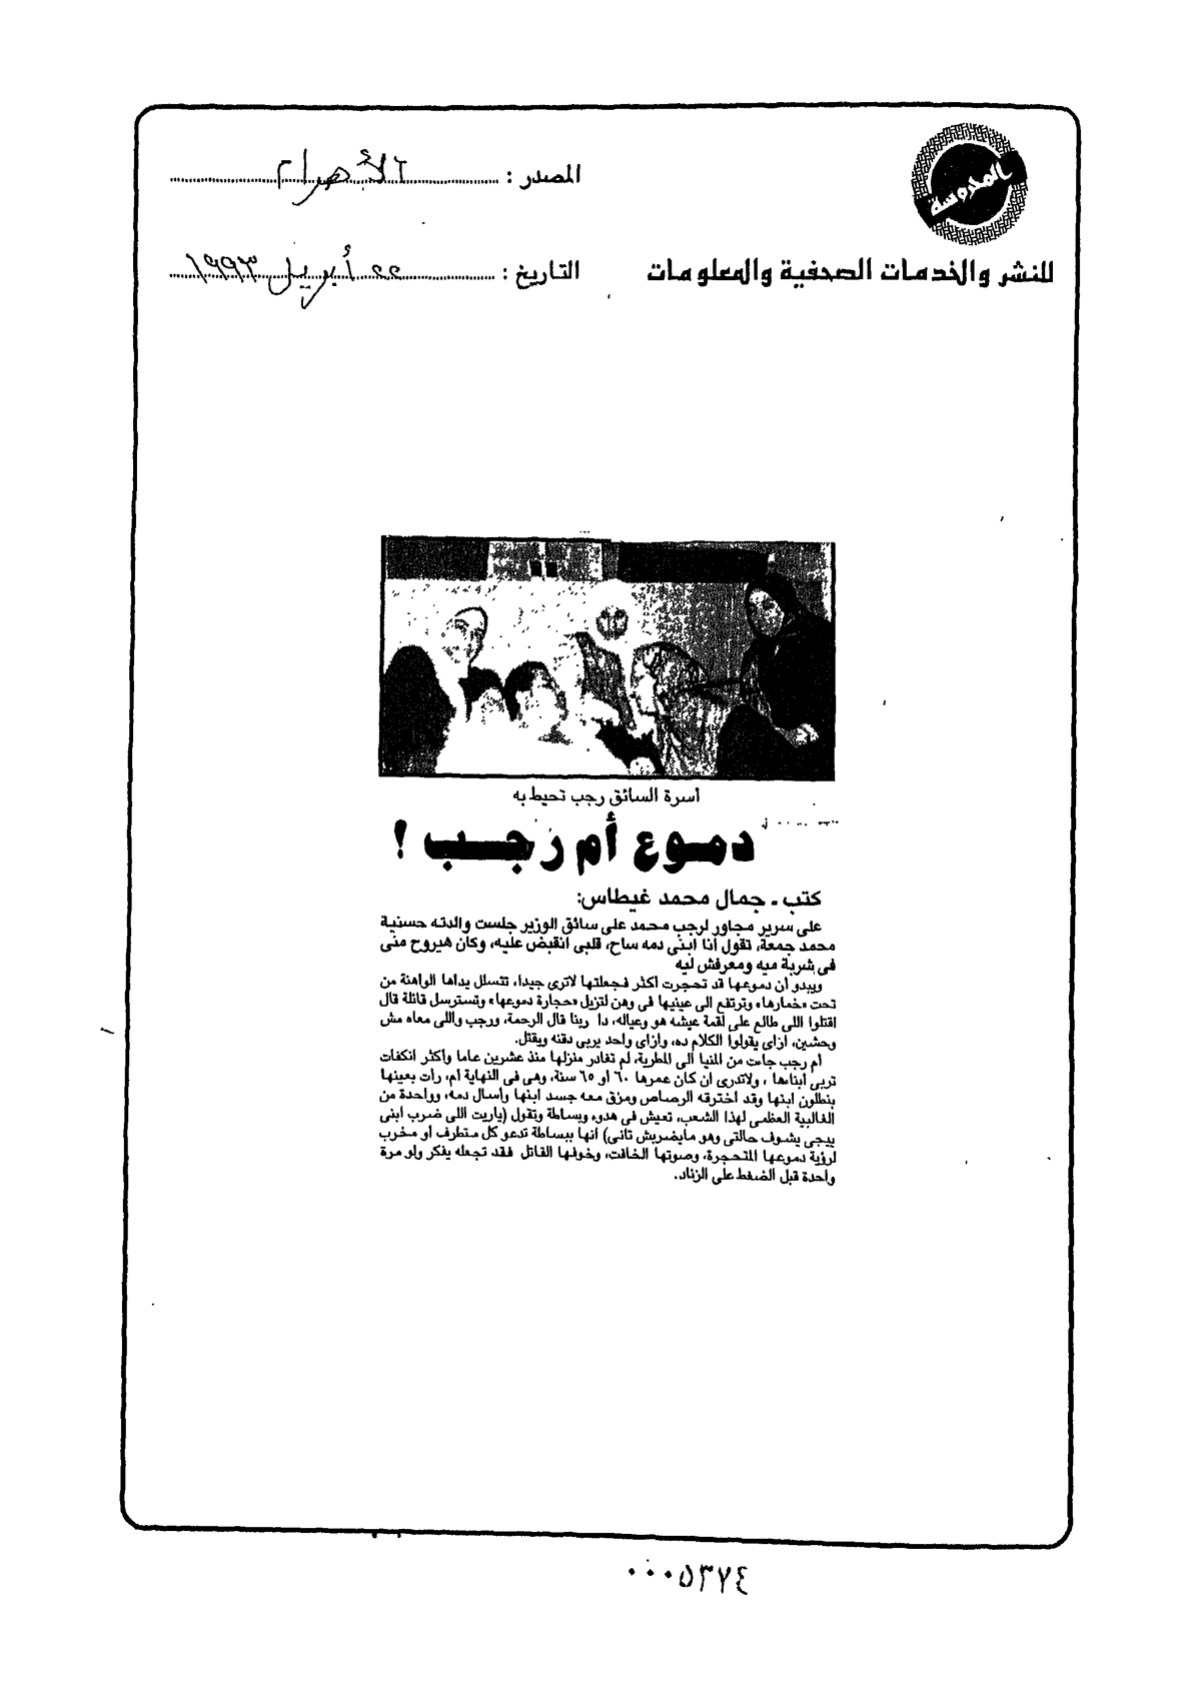 المحروسة
المصدر : الأهرام
للنشر والخدمات الصحفية والمعلومات
التاريخ : ٢٢ أبريل ١٩٩٣
أسرة السائق رجب تحيط به
دموع أم رجب !
كتب ـ جمال محمد غيطاس:
على سرير مجاور لرجب محمد على سائق الوزير جلست والدته حسنية
محمد جمعة، تقول أنا ابنى دمه ساح، قلبى انقبض عليه، وكان هيروح منى
فى شربة ميه ومعرفش ليه
ويبدو أن دموعها قد تحجرت أكثر فجعلتها لاترى جيدا، تتسلل يداها الواهنة من
تحت «خمارها» وترتفع الى عينيها فى وهن لتزيل «حجارة دموعها» وتسترسل قائلة قال
اقتلوا اللى طالع على لقمة عيشه هو وعياله، دا ربنا قال الرحمة، ورجب واللى معاه مش
وحشين، ازاى يقولوا الكلام ده، وازاى واحد يربى دقنه ويقتل.
أم رجب جاءت من المنيا الى المطرية، لم تغادر منزلها منذ عشرين عاما وأكثر انكفات
تربى أبناءها ، ولاتدرى ان كان عمرها ٦٠ او ٦٥ سنة، وهى فى النهاية أم، رأت بعينها
بنطلون ابنها وقد اخترقه الرصاص ومزق معه جسد ابنها وأسال دمه، وواحدة من
الغالبية العظمى لهذا الشعب، تعيش فى هدوء وبساطة وتقول (ياريت اللى ضرب ابنى
ييجى يشوف حالتى وهو مايضربش تانى) انها ببساطة تدعو كل متطرف او مخرب
لرؤية دموعها المتحجرة، وصوتها الخافت، وخوفها القاتل فقد تجعله يفكر ولو مرة
واحدة قبل الضغط على الزناد.
٠٠٠٥٣٧٤